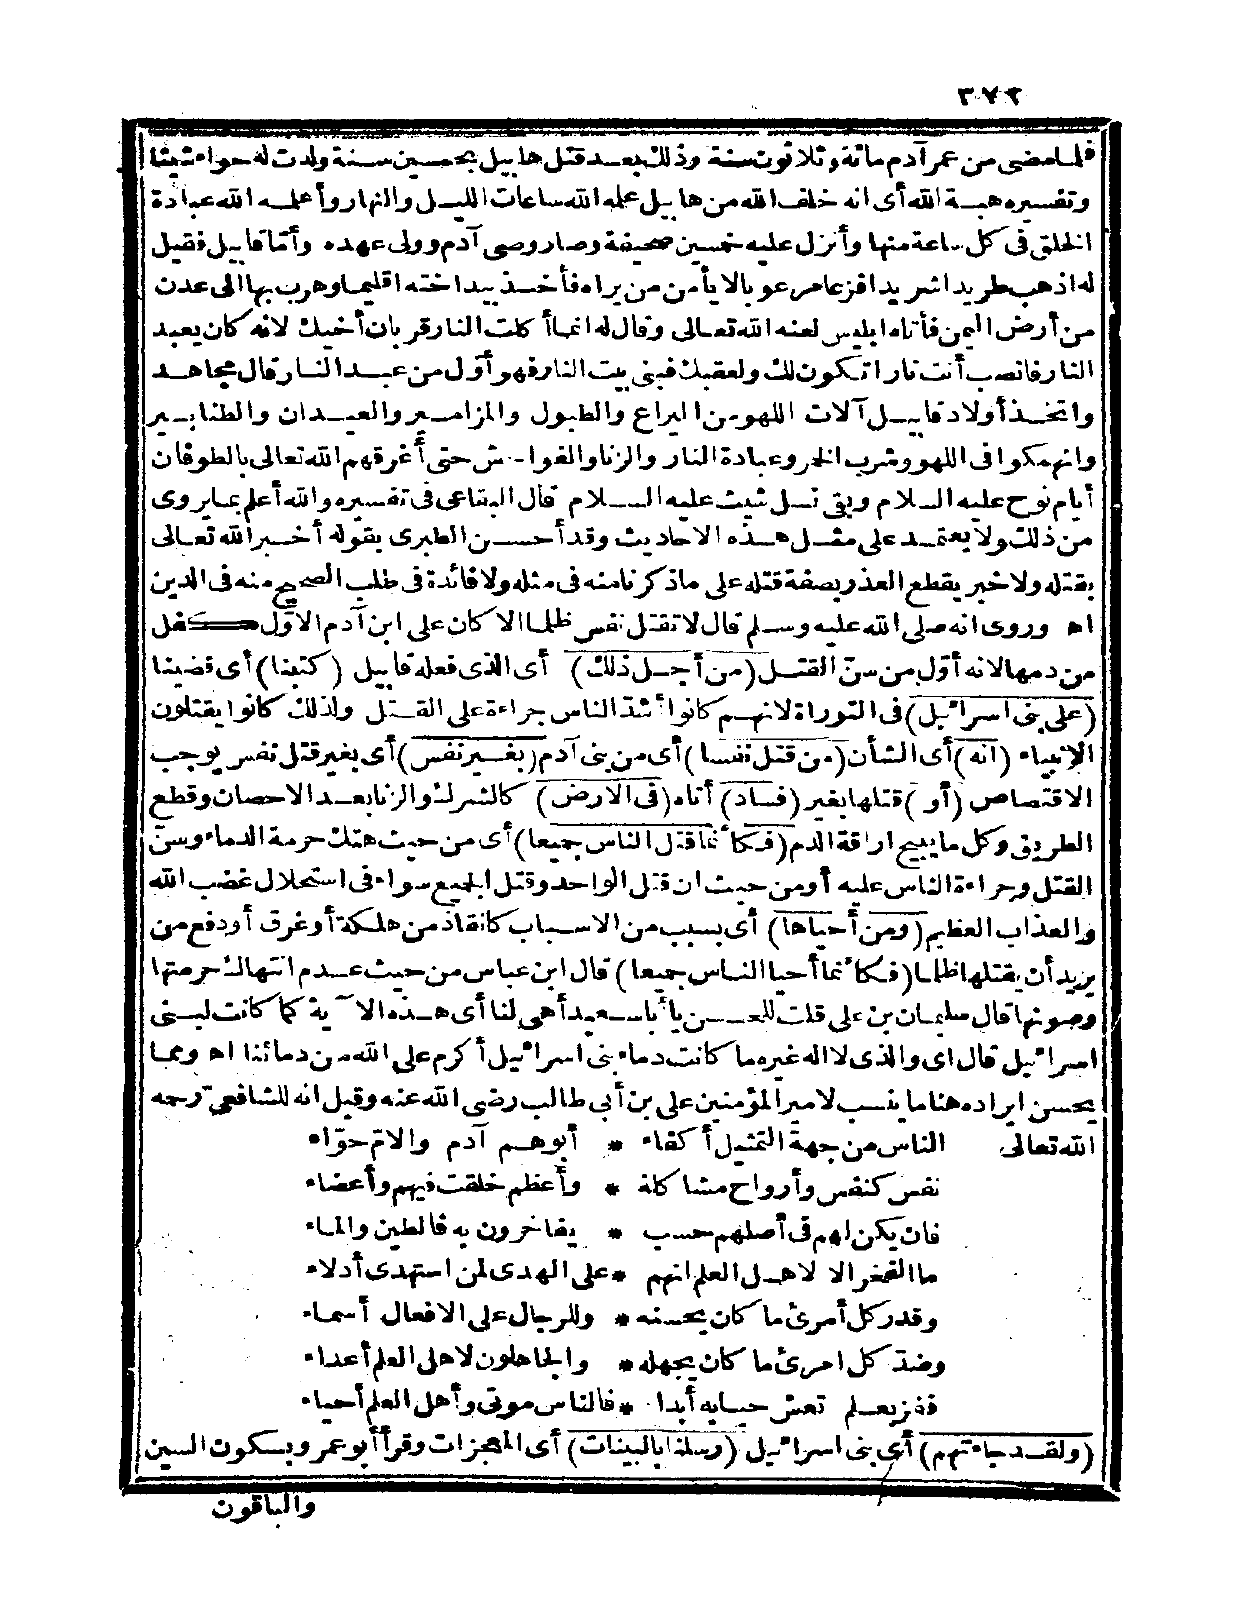 ٣٧٢
فلما مضى من عمر آدم مائة وثلاثون سنة وذلك بعد قتل هابيل بخمسين سنة ولدت له حواء شيثا
وتفسيره هبة الله أى انه خلف الله من هابيل علمه الله ساعات الليل والنهار وأعلمه الله عبادة
الخلق فى كل ساعة منها وأنزل عليه خمسين صحيفة وصار وصى آدم وولى عهده وأما قابيل فقيل
له اذهب طريدا شريدا فزعا مرعوبا لا يأمن من يراه فأخذ بيد اخته اقليما وهرب بها الى عدن
من أرض اليمن فأتاه ابليس لعنه الله تعالى وقال له انما أكلت النار قربان أخيك لانه كان يعبد
النار فانصب أنت نارا تكون لك ولعقبك فبنى بيت النار فهو أول من عبد النار قال مجاهد
واتخذ أولاد قابيل آلات اللهو من اليراع والطبول والمزامير والعيدان والطنابير
وانهمكوا فى اللهو وشرب الخمر وعبادة النار والزنا والفواحش حتى أغرقهم الله تعالى بالطوفان
أيام نوح عليه السلام وبقى نسل شيث عليه السلام قال البقاعى فى تفسيره والله أعلم بما يروى
من ذلك ولا يعتمد على مثل هذه الاحاديث وقد أحسن الطبرى بقوله أخبر الله تعالى
بقتله ولا خبر يقطع العذر بصفة قتله على ما ذكرنا منه فى مثله ولا فائدة فى طلب الصحيح منه فى الدين
اه وروى انه صلى الله عليه وسلم قال لا تقتل نفس ظلما الا كان على ابن آدم الاول كفل
من دمها لانه أول من سن القتل (من أجل ذلك) أى الذى فعله قابيل (كتبنا) أى قضينا
(على بنى اسرائيل) فى التوراة لانهم كانوا أشد الناس جراءة على القتل ولذلك كانوا يقتلون
الانبياء (انه) أى الشأن (من قتل نفسا) أى من بنى آدم (بغير نفس) أى بغير قتل نفس يوجب
الاقتصاص (أو) قتلها بغير (فساد) أتاه (فى الارض) كالشرك والزنا بعد الاحصان وقطع
الطريق وكل ما يبيح اراقة الدم (فكأنما قتل الناس جميعا) أى من حيث هتك حرمة الدماء وسن
القتل وجراءة الناس عليه أو من حيث ان قتل الواحد وقتل الجميع سواء فى استجلال غضب الله
والعذاب العظيم (ومن أحياها) أى بسبب من الاسباب كانقاذ من هلكة أو غرق أو دفع من
يريد أن يقتلها ظلما (فكأنما أحيا الناس جميعا) قال ابن عباس من حيث عدم انتهاك حرمتها
وصونها قال سليمان بن على قلت للحسن يا أبا سعيد أهى لنا أى هذه الآية كما كانت لبنى
اسرائيل قال اى والذى لا اله غيره ما كانت دماء بنى اسرائيل أكرم على الله من دمائنا اه ومما
يحسن ايراده هنا ما ينسب لامير المؤمنين على بن أبى طالب رضى الله عنه وقيل انه للشافعى رحمه
الله تعالى الناس من جهة التمثيل أكفاء * أبوهم آدم والام حواء
نفس كنفس وأرواح مشاكلة * وأعظم خلقت فيهم وأعضاء
فان يكن لهم فى أصلهم حسب * يفاخرون به فالطين والماء
ما الفخر الا لاهل العلم انهم * على الهدى لمن استهدى أدلاء
وقدر كل أمرئ ما كان يحسنه * وللرجال على الافعال أسماء
وضد كل امرئ ما كان يجهله * والجاهلون لاهل العلم أعداء
ففز بعلم تعش حيا به أبدا * فالناس موتى وأهل العلم أحياء
(ولقد جاءتهم) أى بنى اسرائيل (رسلنا بالبينات) أى المعجزات وقرأ أبو عمرو بسكون السين
والباقون